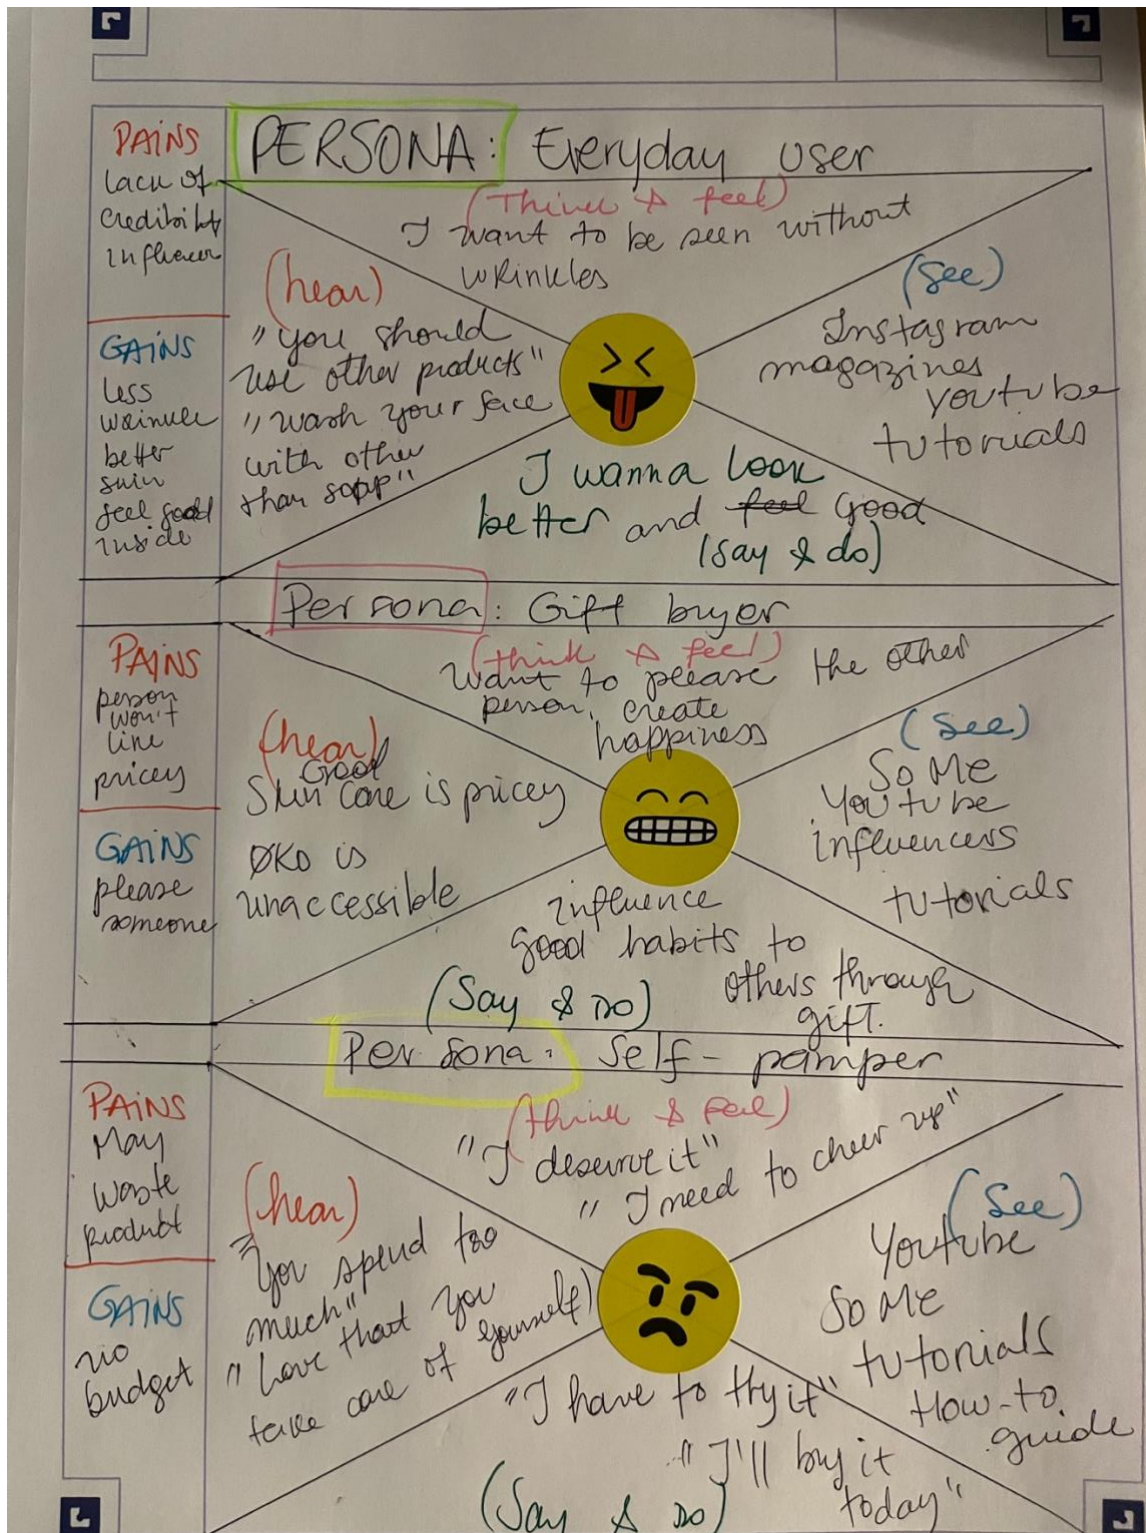 PERSONA: Everyday user
PAINS
lack of
credibility
influencer
GAINS
less
wrinkle
better
skin
feel good
inside
(Think & feel)
I want to be seen without
wrinkles
(hear)
"you should
use other products"
"wash your face
with other
than soap"
(See)
Instagram
magazines
youtube
tutorials
I wanna look
better and feel good
(say & do)
Persona: Gift buyer
PAINS
person
won't
like
pricey
GAINS
please
someone
(think & feel)
Want to please the other
person, create
happiness
(hear)
Good
Skin Care is pricey
ØKO is
unaccessible
(See)
SoMe
Youtube
influencers
tutorials
influence
good habits to
others through
gift.
(Say & Do)
Persona: Self-pamper
PAINS
May
waste
product
GAINS
no
budget
(think & feel)
"I deserve it"
"I need to cheer up"
(hear)
"You spend too
much"
"Love that you
take care of yourself)
(See)
Youtube
SoMe
tutorials
How-to
guide
"I have to try it"
"I'll buy it
today"
(Say & Do)